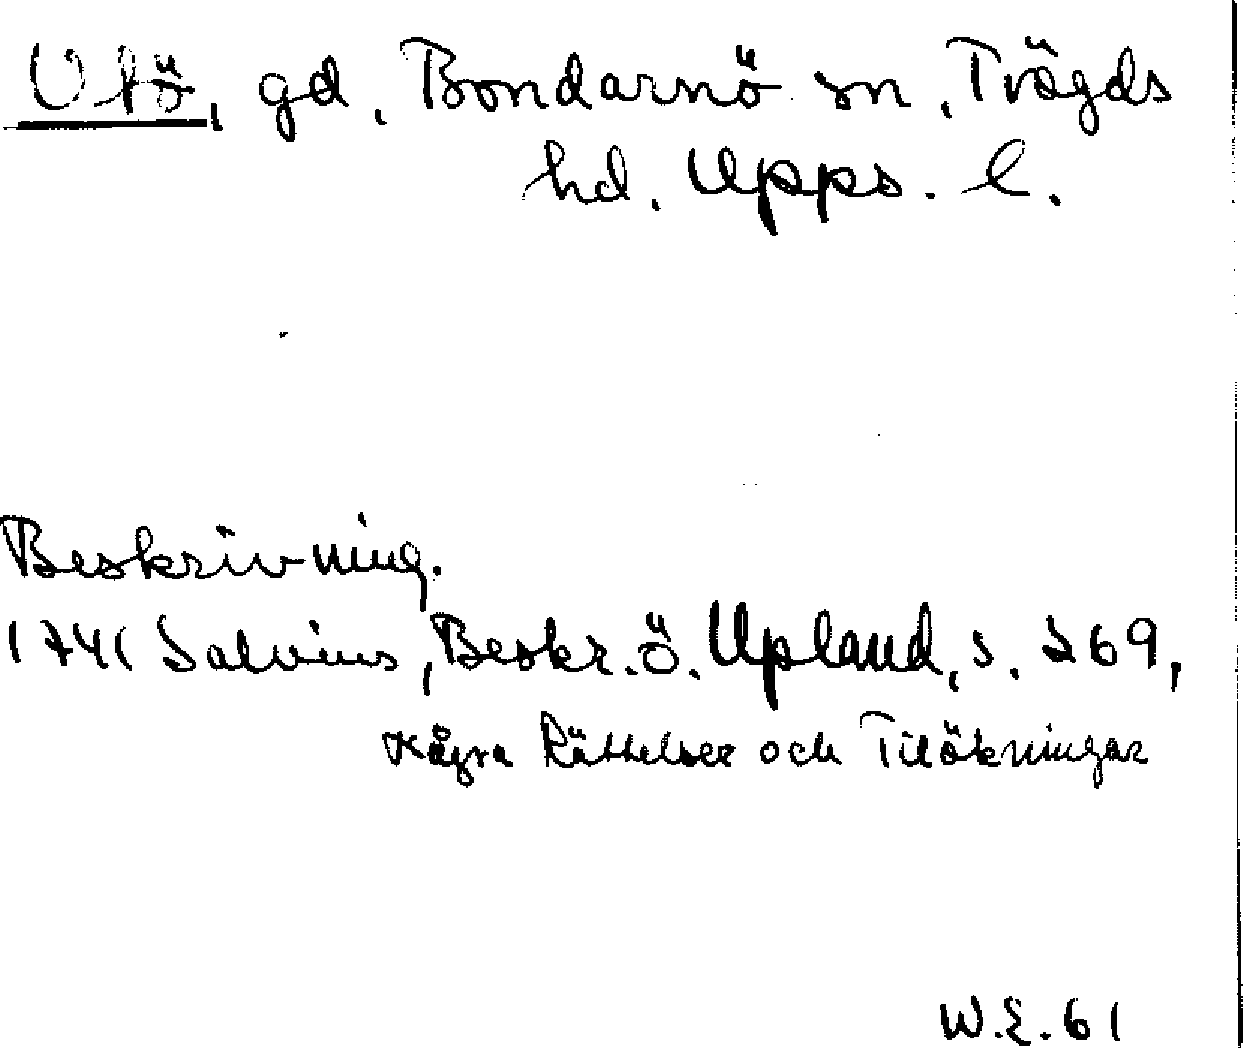 Utö, gd, Bondarnö sn, Trögds
hd. Upps. l.
Beskrivning.
1741 Salvius, Beskr. ö. Upland, s. 269,
Några Rättelser och Tilökningar
W.E. 61